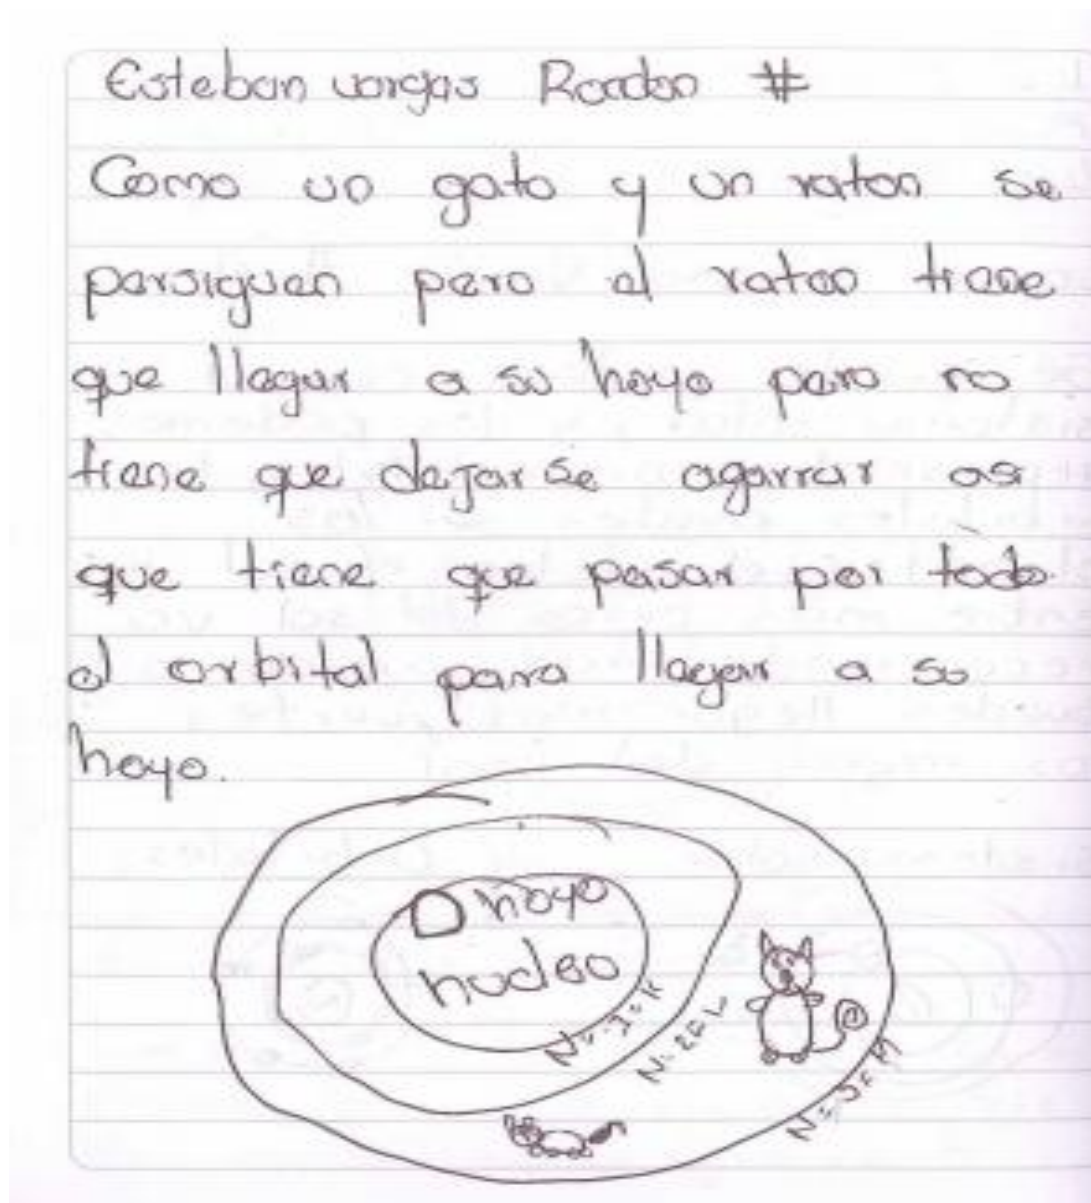 Esteban vargas #
Como un gato y un raton se
persiguen pero el raton tiene
que llegar a su hoyo pero no
tiene que dejarse agarrar asi
que tiene que pasar por todo
el orbital para llegar a su
hoyo.
hoyo
nucleo
N=1=K
N=2=L
N=3=M